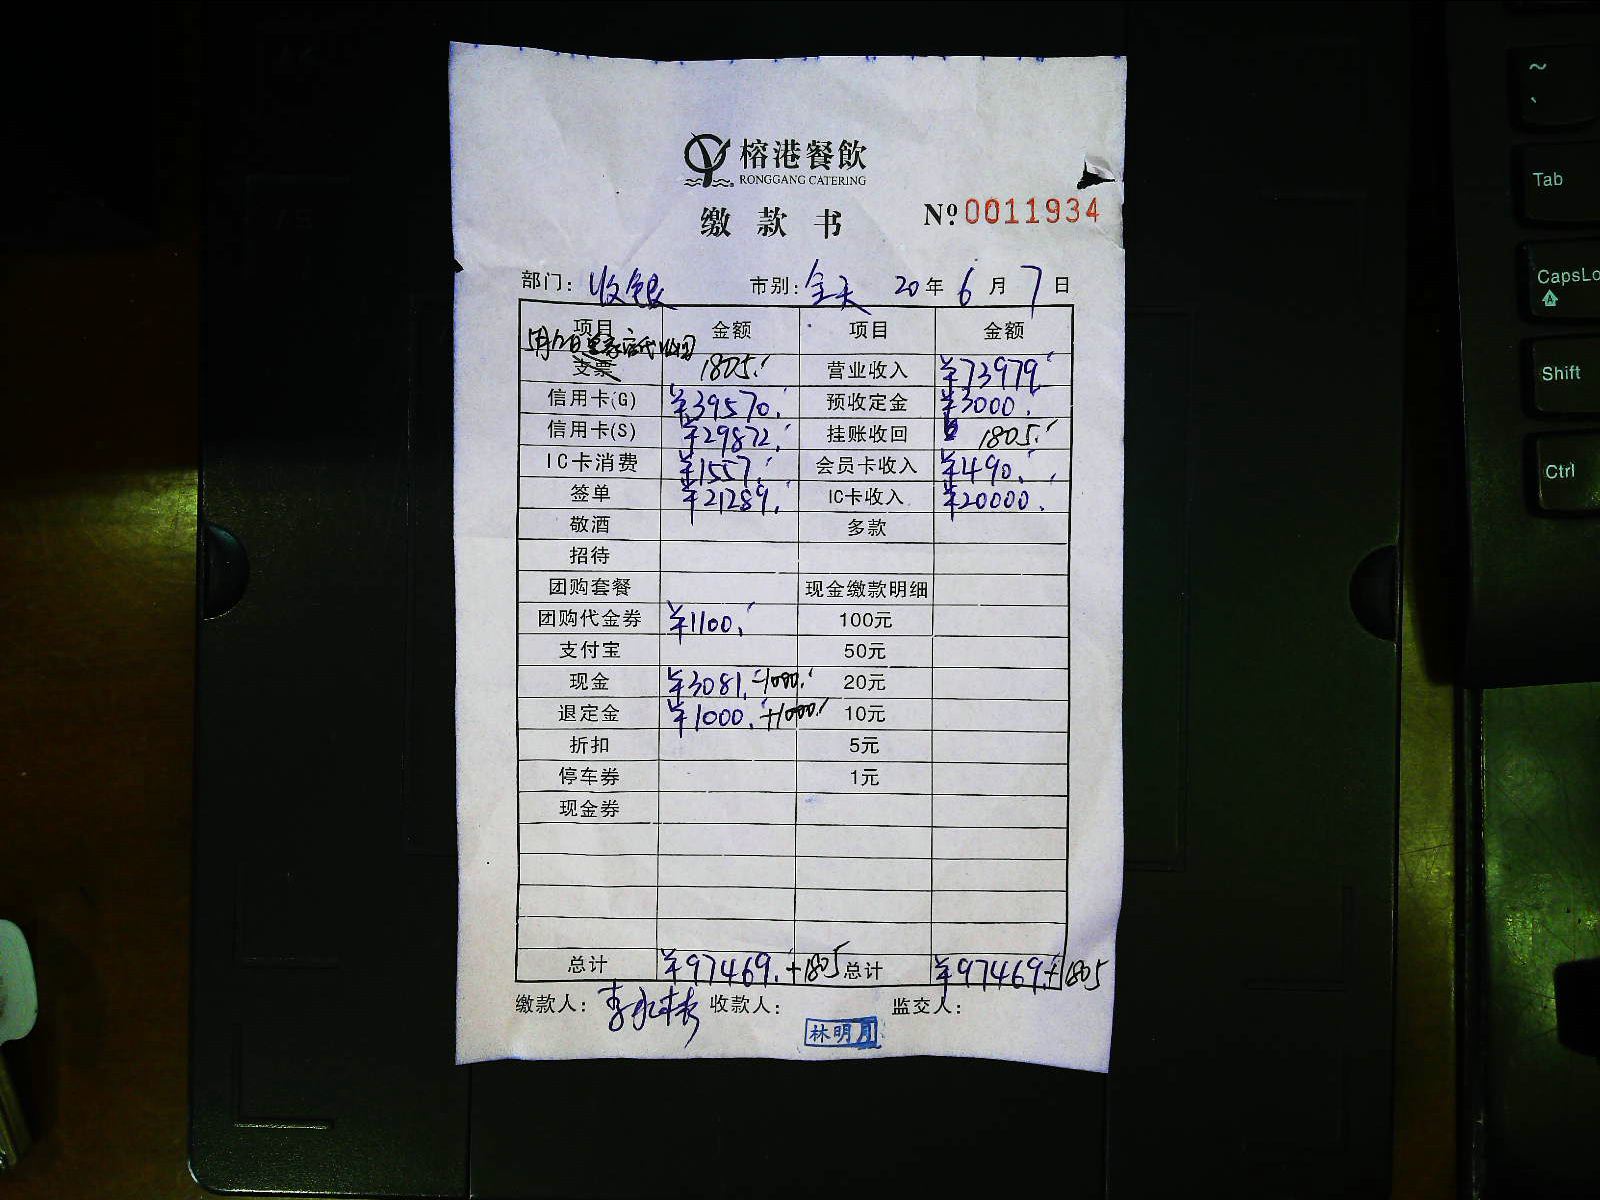 榕港餐飲
RONGGANG CATERING
缴款书
№0011934
部门: 收银 市别: 全天 20年6月7日
项目 金额 项目 金额
支票 1805. 营业收入 ¥73979
信用卡(G) ¥39570. 预收定金 ¥3000.
信用卡(S) ¥29872. 挂账收回 1805.
IC卡消费 ¥1557. 会员卡收入 ¥490.
签单 ¥21289. IC卡收入 ¥20000.
敬酒 多款
招待
团购套餐 现金缴款明细
团购代金券 ¥1100. 100元
支付宝 50元
现金 ¥3081. -1000. 20元
退定金 ¥1000. +1000. 10元
折扣 5元
停车券 1元
现金券
总计 ¥97469.+1805 总计 ¥97469.+1805
缴款人: 收款人: 监交人:
林明月
~
`
Tab
CapsLo
Shift
Ctrl